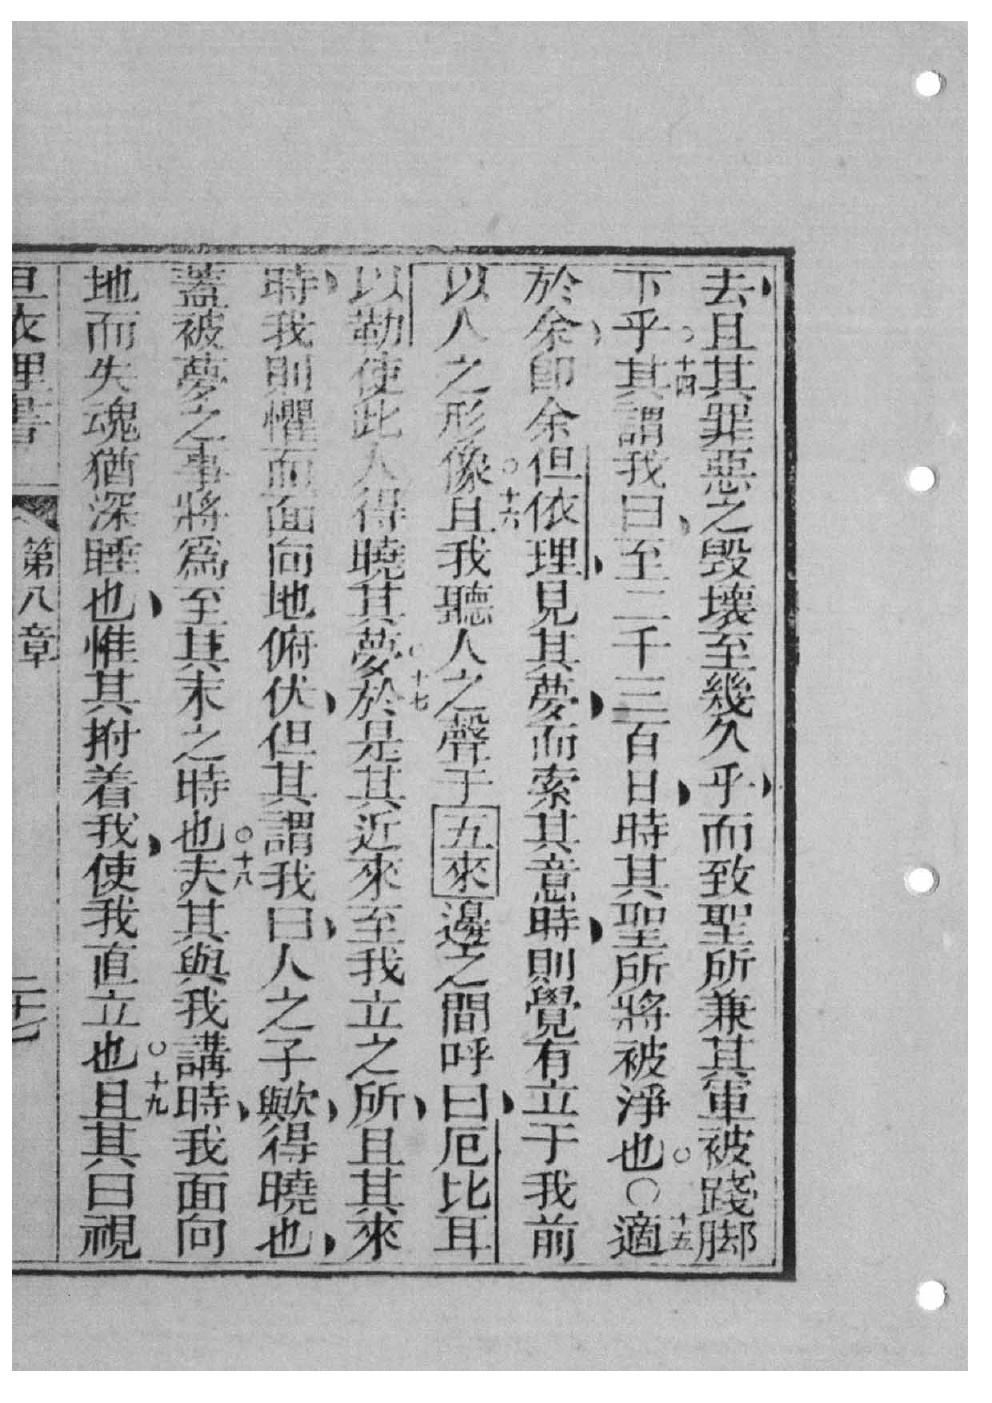 去且其罪惡之毀壞至幾久乎而致聖所兼其軍被踐脚
下乎○十四其謂我曰至二千三百日時其聖所將被淨也○○十五適
於余卽余但依理見其夢而索其意時則覺有立于我前
以人之形像○十六且我聽人之聲于五來邊之間呼曰厄比耳
以勒使此人得曉其夢○十七於是其近來至我立之所且其來
時我則懼而面向地俯伏但其謂我曰人之子歟得曉也
蓋被夢之事將爲至其末之時也○十八夫其與我講時我面向
地而失魂猶深睡也惟其拊着我使我直立也○十九且其曰視
但衣理書 第八章 二十七